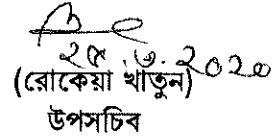 ২৫.৬.২০২০
(রোকেয়া খাতুন)
উপসচিব